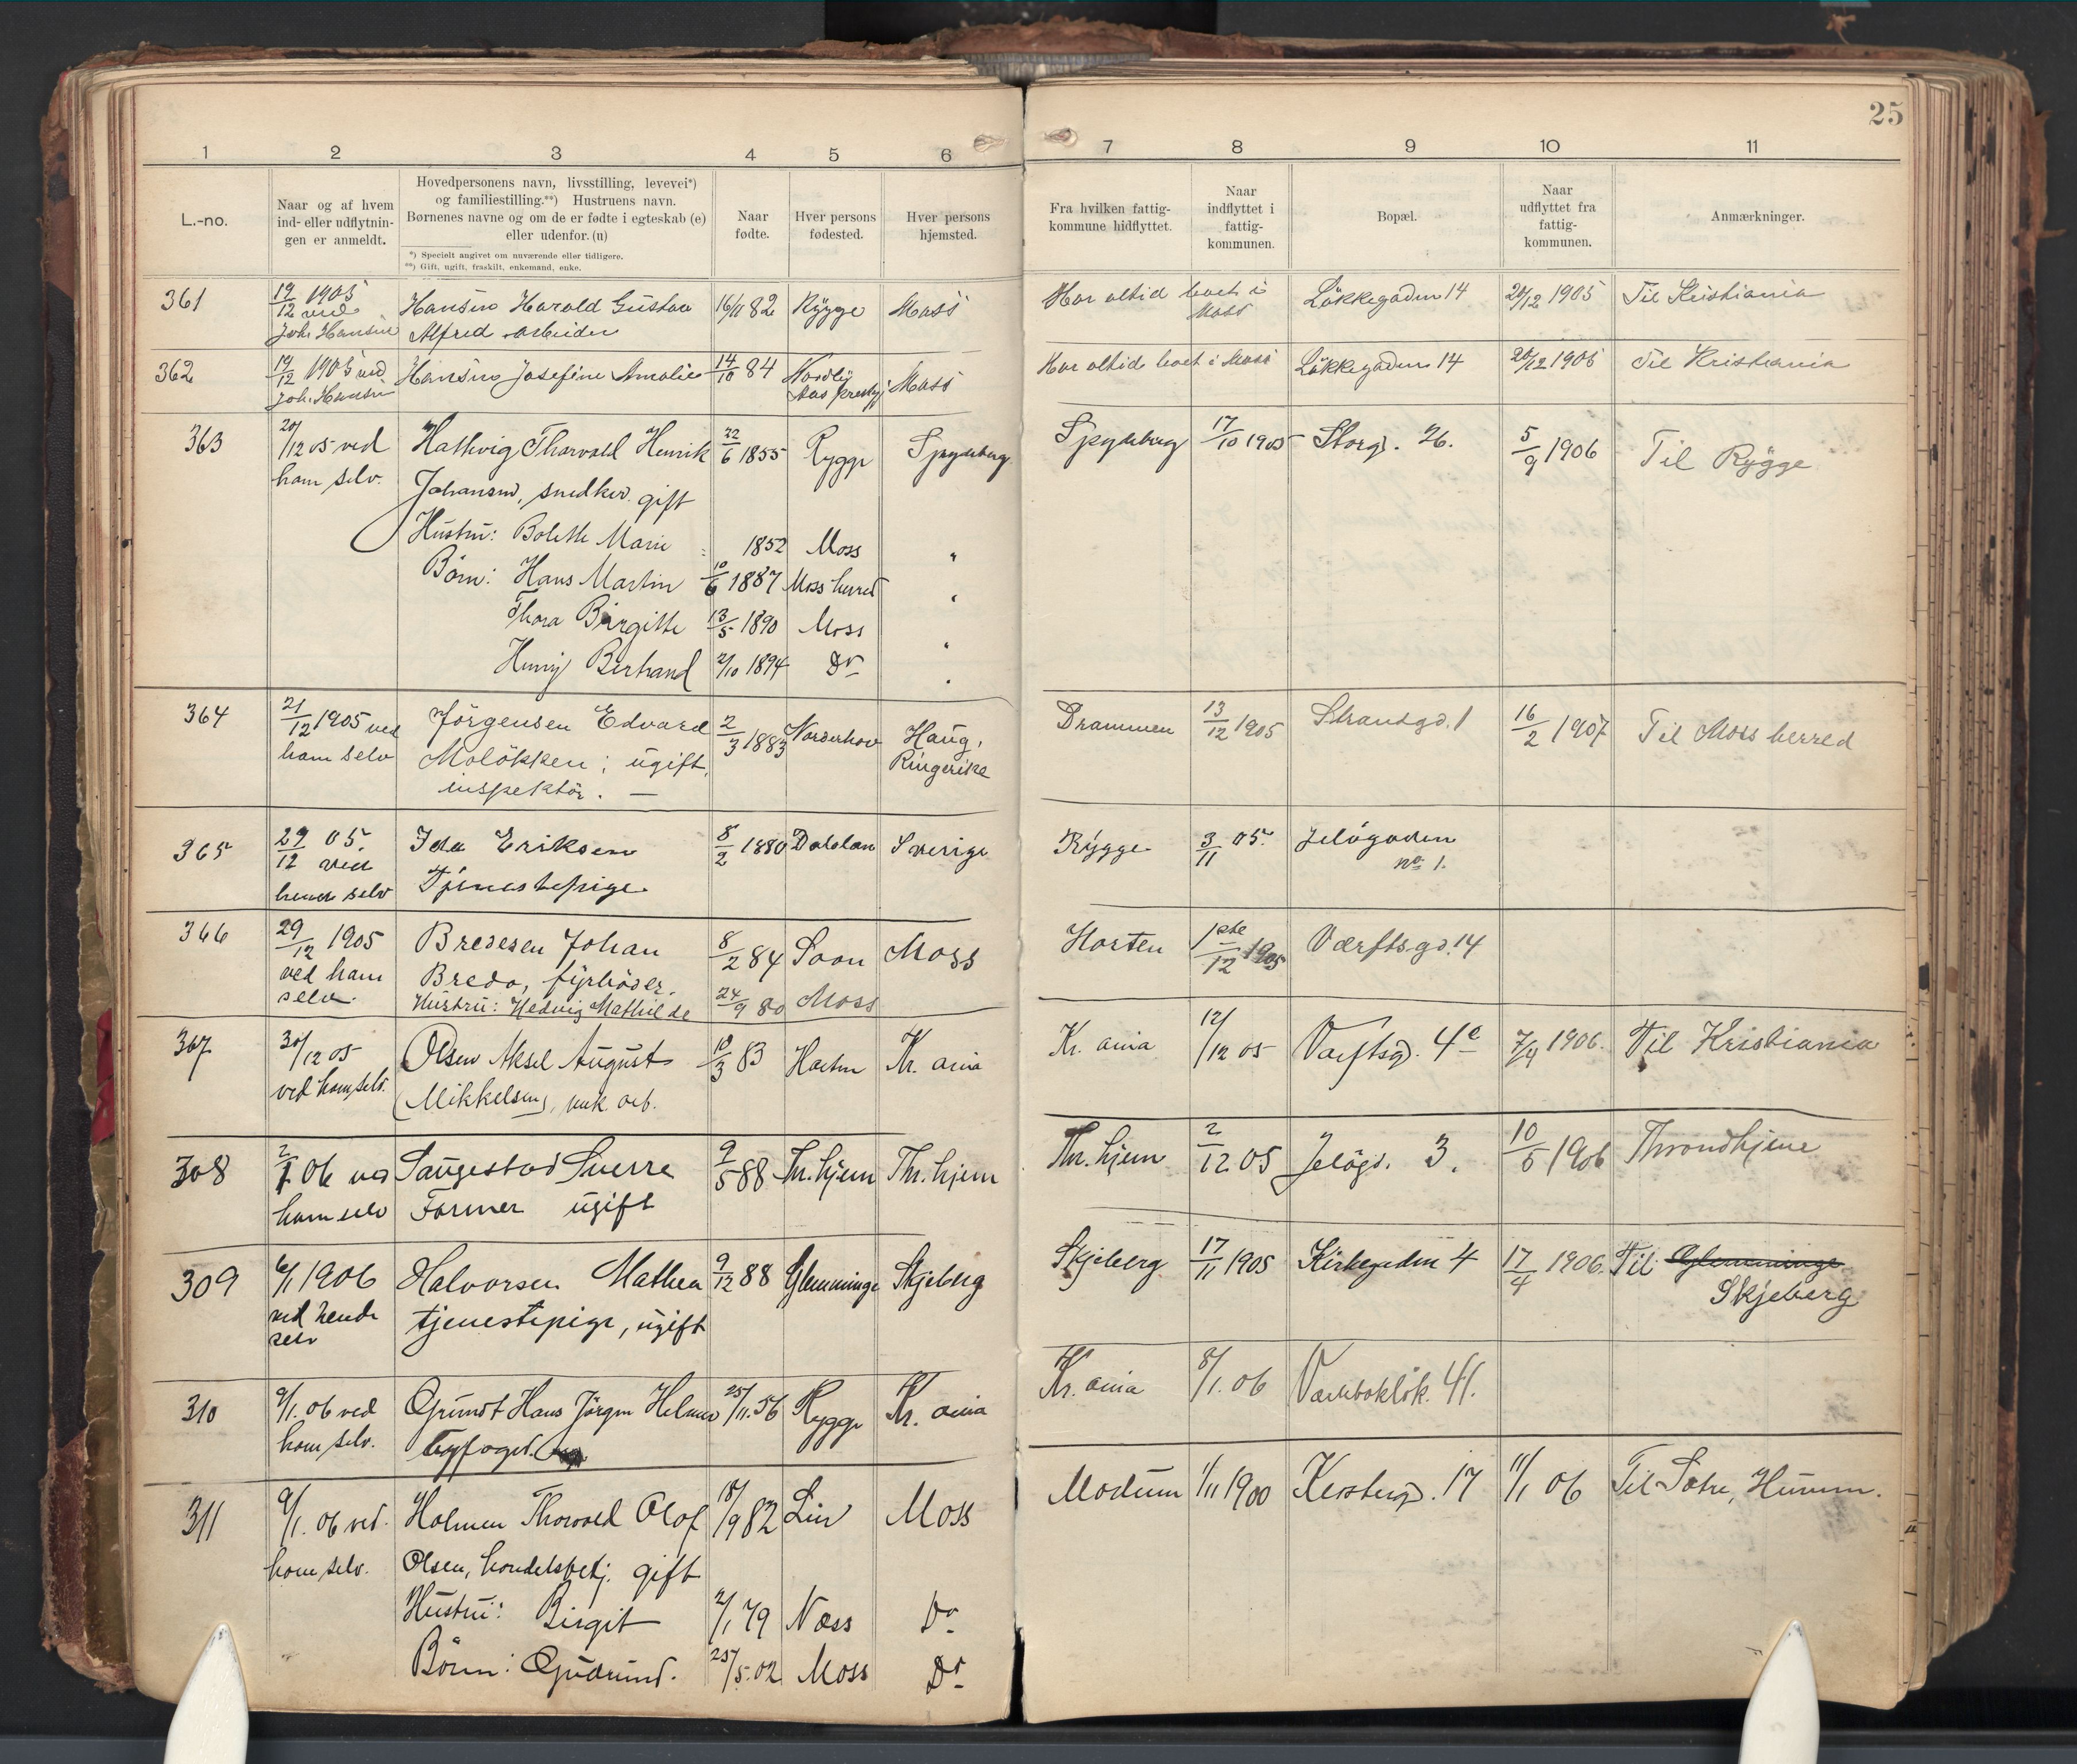 25
1 2 3 4 5 6 7 8 9 10 11
L.-no.
Naar og af hvem
ind- eller udflytnin-
gen er anmeldt.
Hovedpersonens navn, livsstilling, levevei*)
og familiestilling.**) Hustruens navn.
Børnenes navne og om de er fødte i egteskab (e)
eller udenfor. (u)
*) Specielt angivet om nuværende eller tidligere.
**) Gift, ugift, fraskilt, enkemand, enke.
Naar
fødte.
Hver persons
fødested.
Hver persons
hjemsted.
Fra hvilken fattig-
kommune hidflyttet.
Naar
indflyttet i
fattig-
kommunen.
Bopæl.
Naar
udflyttet fra
fattig-
kommunen.
Anmærkninger.
361 19/12 1905 Hansen Harald Gustav 16/11 82 Rygge Moss Har altid boet i Løkkegaden 14 20/12 1905 Til Kristiania
ved Joh. Hansen Alfred arbeider Moss
362 19/12 1905 ved Hansen Josefine Amalie 14/10 84 Nordby Moss Har altid boet i Moss Løkkegaden 14 20/12 1905 Til Kristiania
Joh. Hansen Aas
363 20/12 05 ved Hallvig Tharvald Henrik 22/6 1855 Rygge Spydeberg Spydeberg 17/10 1905 Storg. 26. 5/9 1906 Til Rygge
ham selv. Johansen, snedker. gift
Hustru: Bolette Marie 1852 Moss "
Børn: Hans Martin 10/6 1887 Moss herred "
Thora Birgitte 13/5 1890 Moss "
Henry Bertrand 2/10 1894 Do "
364 21/12 1905 ved Jörgensen Edvard 2/3 1883 Norderhov Haug, Drammen 13/12 1905 Strandgd. 1 16/2 1907 Til Moss herred
ham selv Moløkken; ugift, Ringerike
inspektör. —
365 29/12 05. Ida Eriksen 8/2 1880 Dalsland Sverige Rygge 3/11 05. Jeløgaden
ved hende selv Tjenestepige No 1.
366 29/12 1905 Bredesen Johan 8/2 84 Soon Moss Horten 1ste/12 1905 Værftsgd. 14
ved ham Bredo, fyrböder.
selv. Hustru: Hedvig Mathilde 24/9 80 Moss
307 30/12 05 Olsen Aksel August 10/3 83 Horten Kr. ania Kr. ania 12/12 05 Værftsgd. 4c 7/4 1906. Til Kristiania
ved ham selv. (Mikkelsen), mek. arb.
308 2/1 06 ved Saugestad Sverre 9/5 88 Th.hjem Th.hjem Th.hjem 2/12 05 Jeløgd. 3. 10/5 1906 Throndhjem
ham selv Former ugift
309 6/1 1906 Halvorsen Mathea 9/12 88 Glemminge Skjeberg Skjeberg 17/11 1905 Kirkegaden 4 17/4 1906. Til Glemminge
ved hende tjenestepige, ugift Skjeberg
selv
310 9/1. 06 ved Grundt Hans Jørgen Helmer 25/11. 56 Rygge Kr. ania Kr. ania 8/1. 06 41.
ham selv.
311 9/1. 06 ved. Holmen Thorvald Olaf 18/9 82 Lier Moss Modum 1/11 1900 17 11/1 06 Til Sætre, Hurum.
ham selv. Olsen, handelsbetj. gift
Hustru: Birgit 2/1 79 Næss Do
Børn: Gudrund. 25/5. 02 Moss Do